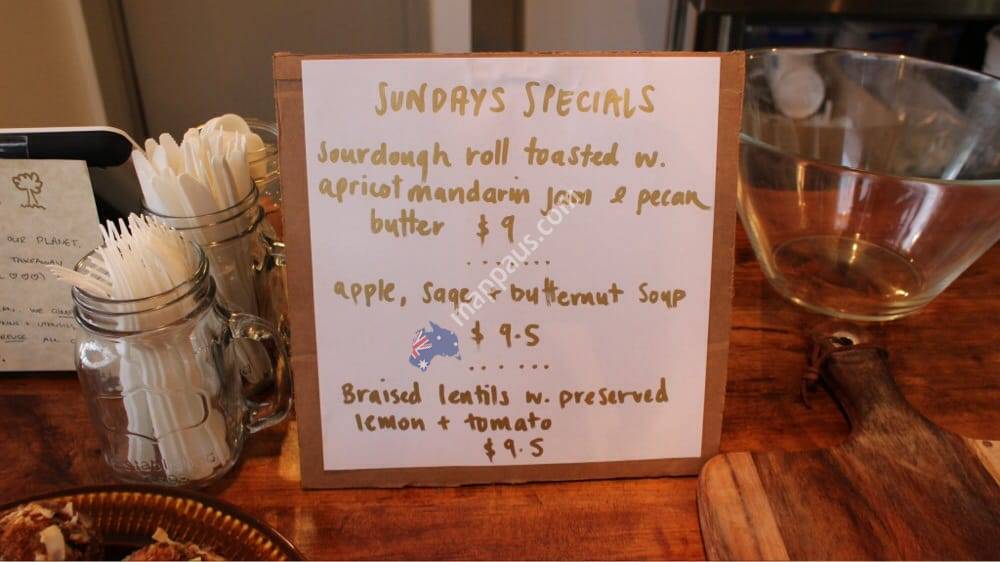 SUNDAYS SPECIALS
Sourdough roll toasted w.
apricot mandarin jam & pecan
butter $9
.......
apple, sage + butternut soup
$9.5
......
Braised lentils w. preserved
lemon + tomato
$9.5
mapaus.com
OUR PLANET.
TAKEAWAY
REUSE ALL